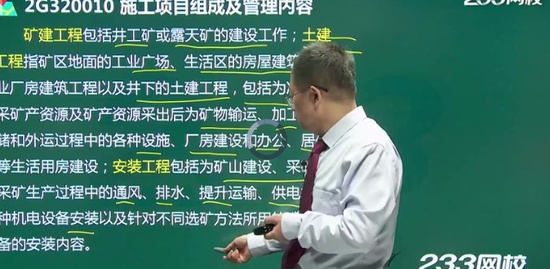 2G320010 施工项目组成及管理内容
233网校
矿建工程包括井工矿或露天矿的建设工作；土建
工程指矿区地面的工业广场、生活区的房屋建筑
业厂房建筑工程以及井下的土建工程，包括为
采矿产资源及矿产资源采出后为矿物输运、加工
储和外运过程中的各种设施、厂房建设和办公、居
等生活用房建设；安装工程包括为矿山建设、采
采矿生产过程中的通风、排水、提升运输、供电
种机电设备安装以及针对不同选矿方法所用
备的安装内容。
233网校